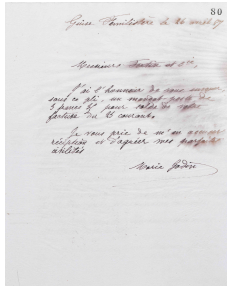 80
Guise Familistère le 26 août 87
Messieurs et Cie,
J'ai l'honneur de vous envoyer
sous ce pli, un mandat poste de
3 francs pour solde de votre
facture du 23 courant.
Je vous prie de m'en accuser
réception et d'agréer mes parfaites
civilités
Marie Godin